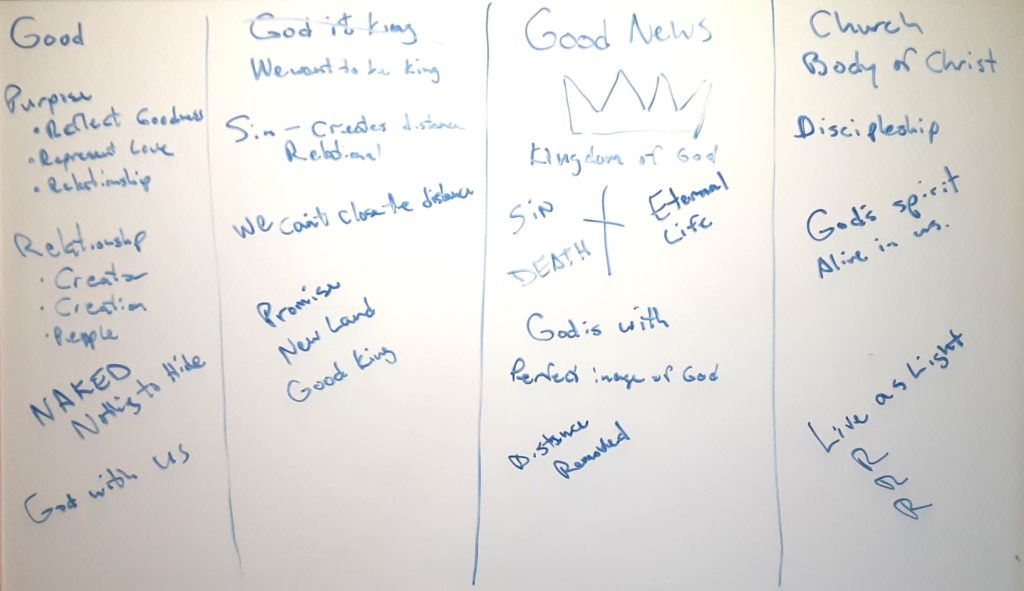 Good
Purpose
• Reflect Goodness
• Represent Love
• Relationship
Relationship
• Creator
• Creation
• People
NAKED
Nothing to Hide
God with us
God is King
We want to be King
Sin – Creates distance
Relational
We can't close the distance
Promise
New Land
Good King
Good News
Kingdom of God
SIN
DEATH
Eternal
Life
God is with
Perfect image of God
Distance
Removed
Church
Body of Christ
Discipleship
God's spirit
Alive in us.
Live as Light
R
R
R